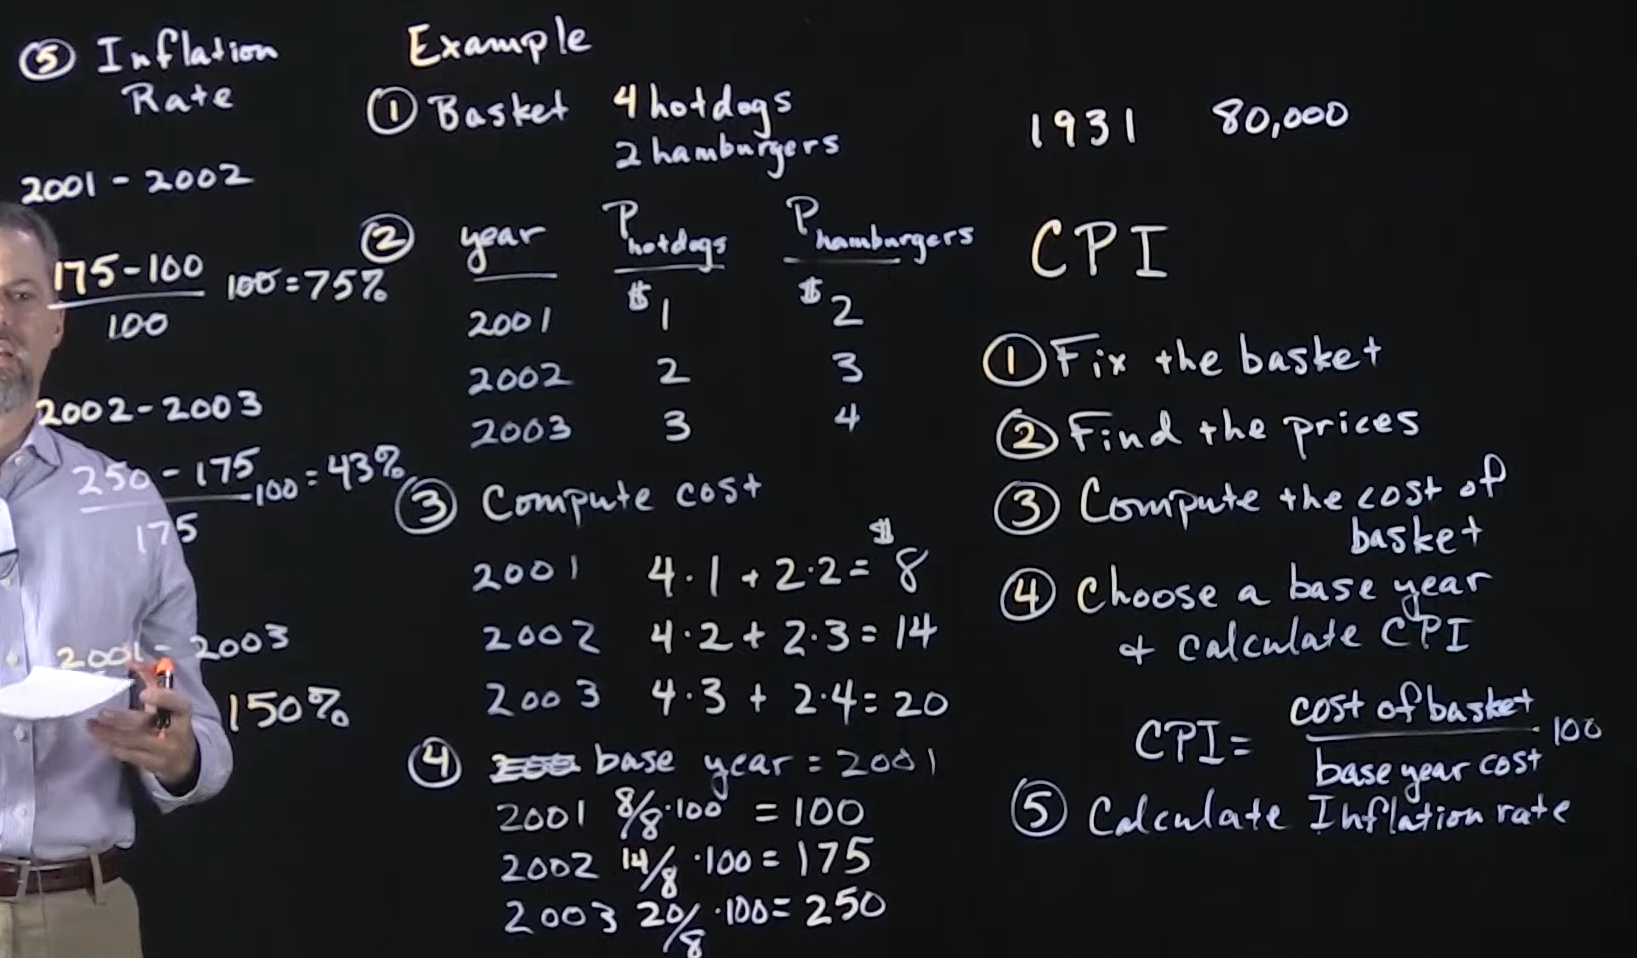 ⑤ Inflation
Rate
2001 - 2002
175-100
100 = 75%
100
2002-2003
250 - 175
100 = 43%
175
2001 - 2003
150%
Example
① Basket 4 hotdogs
2 hamburgers
② year P hotdogs P hamburgers
2001 $1 $2
2002 2 3
2003 3 4
③ Compute cost
2001 4·1 + 2·2 = $8
2002 4·2 + 2·3 = 14
2003 4·3 + 2·4 = 20
④ base year = 2001
2001 8/8 ·100 = 100
2002 14/8 ·100 = 175
2003 20/8 ·100 = 250
1931 80,000
CPI
① Fix the basket
② Find the prices
③ Compute the cost of
basket
④ Choose a base year
+ calculate CPI
cost of basket
CPI = 100
base year cost
⑤ Calculate Inflation rate